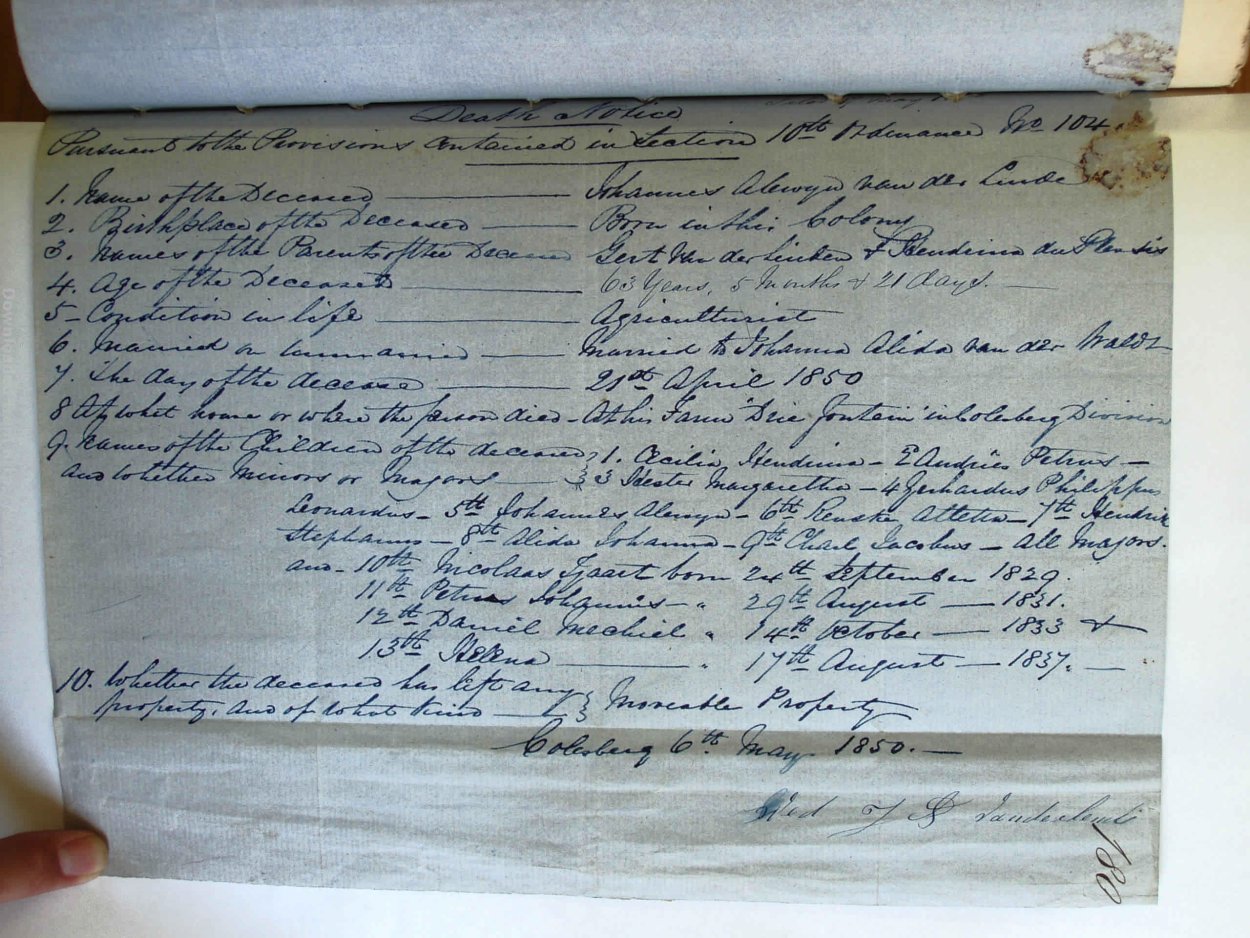 Death Notice
Pursuant to the Provisions Contained in Section 10th Ordinance No 104.
1. Name of the Deceased — Johannes Alewyn van der Linde
2. Birthplace of the Deceased — Born in this Colony
3. Names of the Parents of the Deceased Gert van der Linden & Hendrina du Plessis
4. Age of the Deceased — 63 Years, 5 Months & 21 days. —
5 - Condition in life — Agriculturist
6. Married or unmarried — Married to Johanna Alida van der Waldt
7. The day of the decease — 21st April 1850
8 At what house or where the person died - At his Farm "Drie Fontein" in Colesberg Division
9. Names of the Children of the deceased 1. Cecilia Hendrina - 2 Andries Petrus -
and whether Minors or Majors — 3 Hester Margaretha - 4 Gerhardus Philippus
Leonardus - 5th Johannes Alewyn - 6th Renske Alletta - 7th Hendrik
Stephanus - 8th Alida Johanna - 9th Charl Jacobus - All Majors.
and - 10th Nicolaas Tjaart born 24th September 1829.
11th Petrus Johannis - " 29th August — 1831.
12th Daniel Mechiel " 14th October — 1833 &
13th Helena — " 17th August — 1837. —
10. Whether the deceased has left any
property, and of what kind — Moveable Property
Colesberg 6th May 1850. —
Wed J A vanderlinde
180